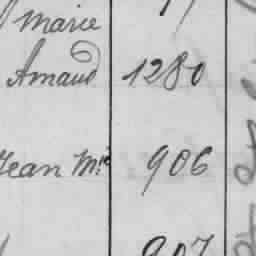 Marie
Arnaud 1280
Jean Mie 906
907